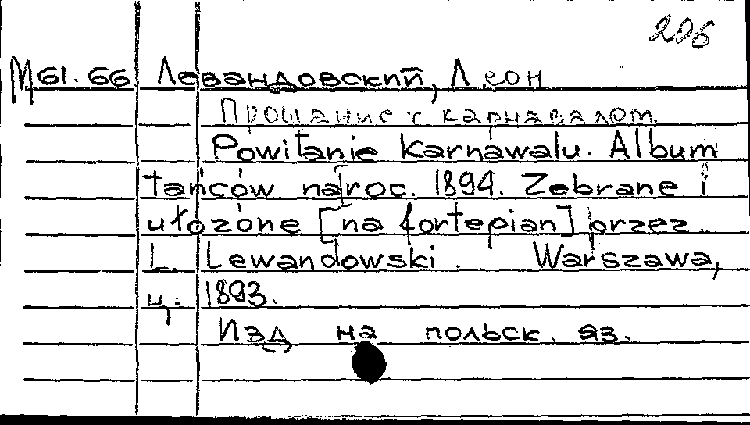 206
М61.66 Левандовский, Леон
Прощание с карнавалом
Powitanie karnawalu. Album
tańców na roc. 1894. Zebrane i
ułozone [na fortepian] przez
L. Lewandowski. Warszawa,
ц. 1893.
Изд на польск. яз.